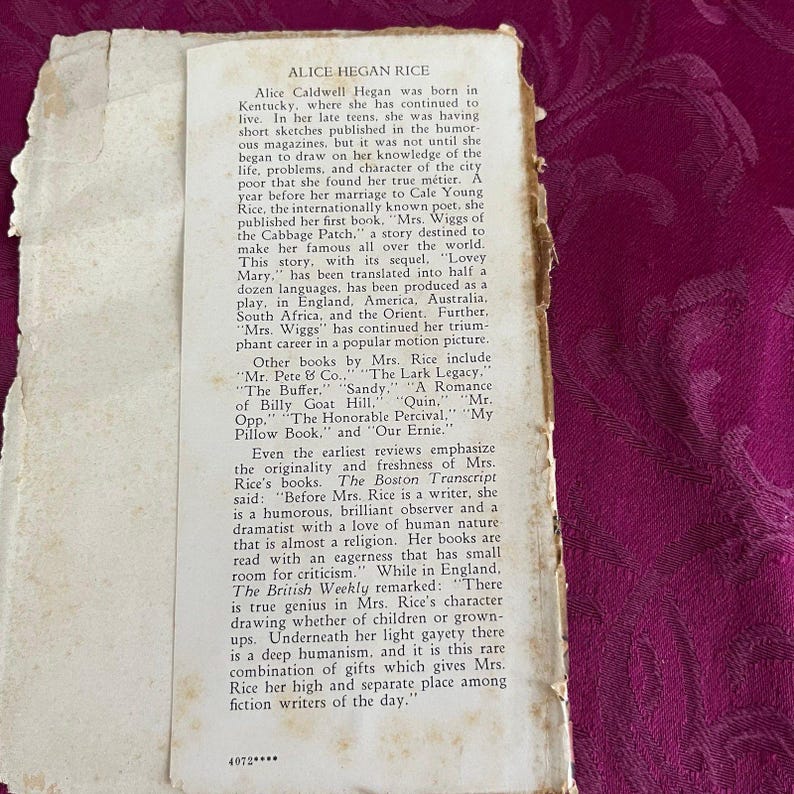 ALICE HEGAN RICE
Alice Caldwell Hegan was born in
Kentucky, where she has continued to
live. In her late teens, she was having
short sketches published in the humor-
ous magazines, but it was not until she
began to draw on her knowledge of the
life, problems, and character of the city
poor that she found her true métier. A
year before her marriage to Cale Young
Rice, the internationally known poet, she
published her first book, "Mrs. Wiggs of
the Cabbage Patch," a story destined to
make her famous all over the world.
This story, with its sequel, "Lovey
Mary," has been translated into half a
dozen languages, has been produced as a
play, in England, America, Australia,
South Africa, and the Orient. Further,
"Mrs. Wiggs" has continued her trium-
phant career in a popular motion picture.
Other books by Mrs. Rice include
"Mr. Pete & Co.," "The Lark Legacy,"
"The Buffer," "Sandy," "A Romance
of Billy Goat Hill," "Quin," "Mr.
Opp," "The Honorable Percival," "My
Pillow Book," and "Our Ernie."
Even the earliest reviews emphasize
the originality and freshness of Mrs.
Rice's books. The Boston Transcript
said: "Before Mrs. Rice is a writer, she
is a humorous, brilliant observer and a
dramatist with a love of human nature
that is almost a religion. Her books are
read with an eagerness that has small
room for criticism." While in England,
The British Weekly remarked: "There
is true genius in Mrs. Rice's character
drawing whether of children or grown-
ups. Underneath her light gayety there
is a deep humanism, and it is this rare
combination of gifts which gives Mrs.
Rice her high and separate place among
fiction writers of the day."
4072****